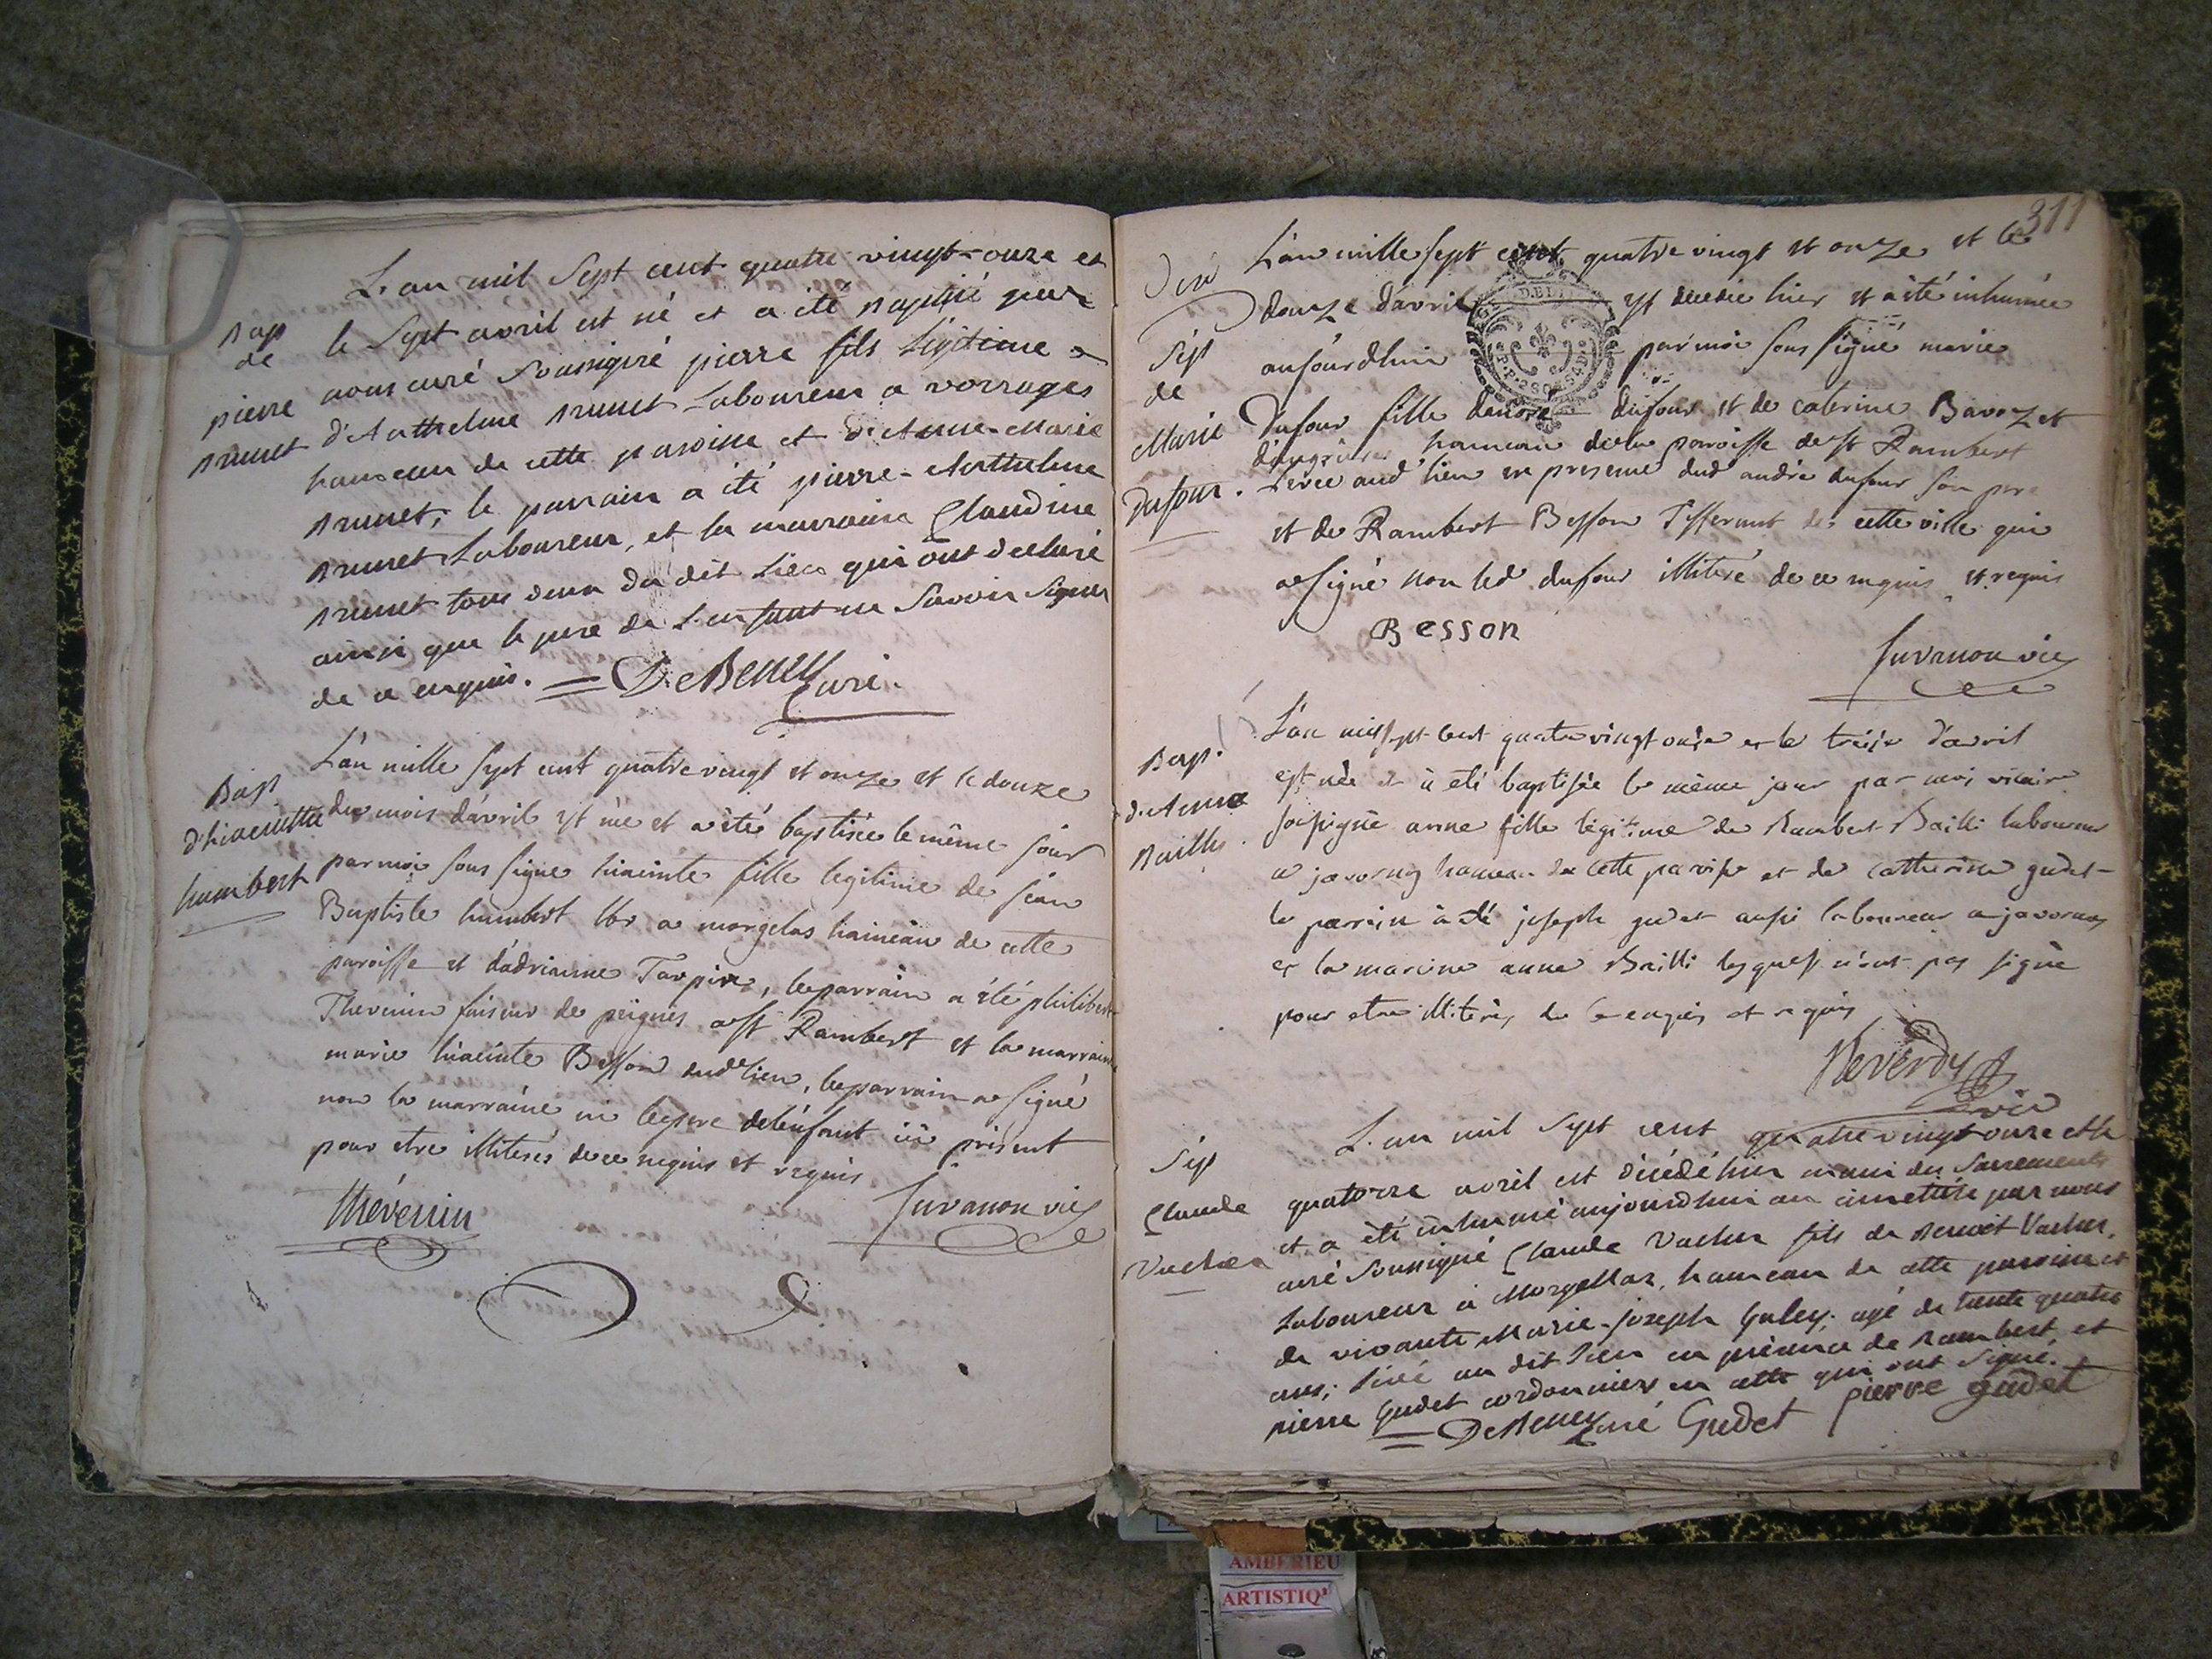 L'an mil sept cent quatre vingt-onze et
Bap
de
pierre
Brunet
le sept avril est né et a été Baptisé par
nous curé soussigné pierre fils légitime
d'Anthelme Brunet Laboureur a vorrages
hameau de cette paroisse et d'Anne-Marie
Brunet, le parrain a été pierre-Anthelme
Brunet Laboureur, et la marraine Claudine
Brunet tous deux du dit Lieu qui ont declaré
ainsi que le pere de L'enfant ne savoir signer
de ce enquis. = DeBeney Curé.
Bap
d'hiacinthe
humbert
L'an mille sept cent quatre vingt et onze et le douze
du mois d'avril est née et a été baptisée le même jour
par moi sous signé hiacinte fille legitime de jean
Baptiste humbert lbr a morgelas haimeau de cette
paroisse et d'adrianne Tarpin, le parrain a été philibert
Thevenin faiseur de peignes a st Rambert et la marraine
marie hiacinte Besson dud lieu, le parrain a signé
non la marraine ni le pere de l'enfant ici présent
pour etre illiterés de ce requis et requis
thévenin
Juvanon vic
311
Sép
de
Marie
Dufour.
L'an mille sept cent quatre vingt et onze et le
douze d'avril est decedée hier et a été inhumée
aujourdhui par moi sous signé marie
Dufour fille d'andré dufour et de caterine Bavozet
hameau de la paroisse de st Rambert
Levée aud lieu en presence dud andré dufour son pere
et de Rambert Besson Tisserant de cette ville qui
a signé non led dufour illiteré de ce enquis et requis
Besson
Juvanon vic
Bap.
d'Anne
Bailli.
L'an mil sept cent quatre vingt onze et le treize d'avril
est née et à été baptisée le même jour par moi vicaire
sousigné anne fille légitime de Rambert Bailli laboureur
a javornoz hameau de cette paroisse et de catherine gudet
le parrain à été joseph gudet aussi laboureur a javornoz
et la maraine anne Bailli lesquels n'ont pas signé
pour etre illiterés de ce enquis et requis
Reverdy
vic
Sép
Claude
Vacher
L'an mil sept cent quatre vingt onze et le
quatorze avril est décédé hier muni des sacrements
et a été inhumé aujourdhui au cimetière par nous
curé soussigné Claude Vacher fils de Benoit Vacher,
Laboureur à Morgellas, hameau de cette paroisse et
de vivante Marie-joseph Guley; agé de trente quatre
ans; Livé au dit Lieu en présence de Rambert, et
pierre Gudet cordonniers en cette qui ont signé.
= DeBeney Curé Gudet pierre gudet
AMBERIEU
ARTISTIQ